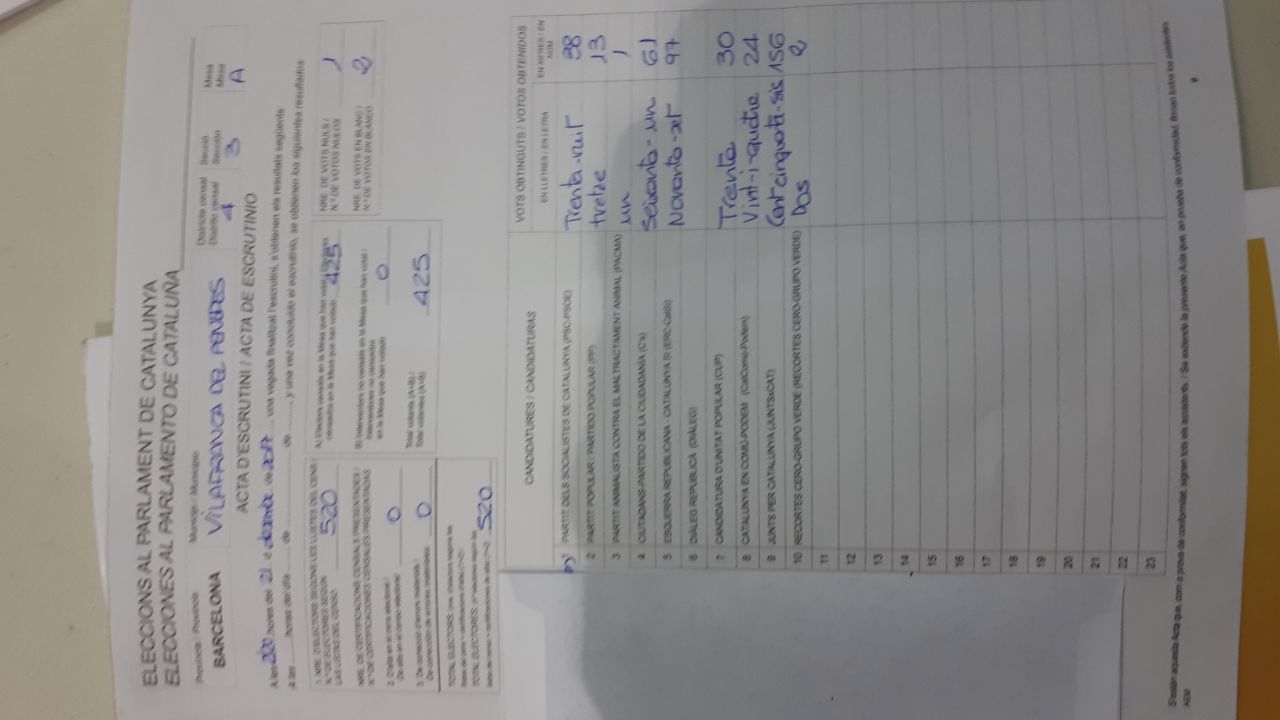 ELECCIONS AL PARLAMENT DE CATALUNYA
ELECCIONES AL PARLAMENTO DE CATALUÑA
Província / Provincia
Municipi / Municipio
Districte censal
Distrito censal
Secció
Sección
Mesa
Mesa
BARCELONA
VILAFRANCA DEL PENEDES
4
3
A
ACTA D'ESCRUTINI / ACTA DE ESCRUTINIO
A les 20:00 hores del 21 d desembre de 2017, una vegada finalitzat l'escrutini, s'obtenen els resultats següents:
A las horas del día de de y una vez concluido el escrutinio, se obtienen los siguientes resultados:
1. NRE. D'ELECTORS SEGONS LES LLISTES DEL CENS /
N.º DE ELECTORES SEGÚN
LAS LISTAS DEL CENSO
520
NRE. DE CERTIFICACIONS CENSALS PRESENTADES /
N.º DE CERTIFICACIONES CENSALES PRESENTADAS
2. D'alta en el cens electoral /
De alta en el censo electoral
0
3. De correcció d'errors materials /
De corrección de errores materiales
0
TOTAL ELECTORS
TOTAL ELECTORES
520
A) Electors censats en la Mesa que han votat /
censados en la Mesa que han votado
425
B) Interventors no censats en la Mesa que han votat /
Interventores no censados
en la Mesa que han votado
0
Total votants (A+B) /
Total votantes (A+B)
425
NRE. DE VOTS NULS /
N.º DE VOTOS NULOS
1
NRE. DE VOTS EN BLANC /
N.º DE VOTOS EN BLANCO
2
CANDIDATURES / CANDIDATURAS
VOTS OBTINGUTS / VOTOS OBTENIDOS
EN LLETRES / EN LETRA
EN XIFRES / EN NÚM
PARTIT DELS SOCIALISTES DE CATALUNYA (PSC-PSOE) Trenta-vuit 38
2 PARTIT POPULAR / PARTIDO POPULAR (PP) tretze 13
3 PARTIT ANIMALISTA CONTRA EL MALTRACTAMENT ANIMAL (PACMA) un 1
4 CIUTADANS-PARTIDO DE LA CIUDADANÍA (C's) Seixanta-un 61
5 ESQUERRA REPUBLICANA - CATALUNYA SÍ (ERC-CatSí) Noranta-set 97
6 DIÀLEG REPUBLICÀ (DIÀLEG)
7 CANDIDATURA D'UNITAT POPULAR (CUP) Trenta 30
8 CATALUNYA EN COMÚ-PODEM (CatComú-Podem) Vint-i-quatre 24
9 JUNTS PER CATALUNYA (JUNTSxCAT) Cent cinquata-sis 156
10 RECORTES CERO-GRUPO VERDE (RECORTES CERO-GRUPO VERDE) Dos 2
11
12
13
14
15
16
17
18
19
20
21
22
23
S'estén aquesta Acta que, com a prova de conformitat, signen tots els assistents. / Se extiende la presente Acta que, en prueba de conformidad, firman todos los asistentes
AEM